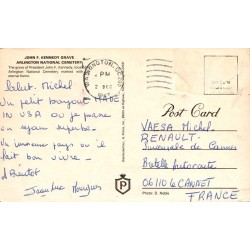 JOHN F. KENNEDY GRAVE
ARLINGTON NATIONAL CEMETERY
The grave of President John F. Kennedy, located
Arlington National Cemetery marked with
eternal flame.
Salut Michel
Un petit bonjour MADE
IN USA où je passe
un séjour superbe.
Un immense pays où il
fait bon vivre -
A Bientot
WASHINGTON, DC
PM
2 DEC
Post Card
VAESA Michel
RENAULT.
Succursale de Cannes
Bretelle Autoroute
06110 LE CANNET
FRANCE
P
Photo: D. Noble